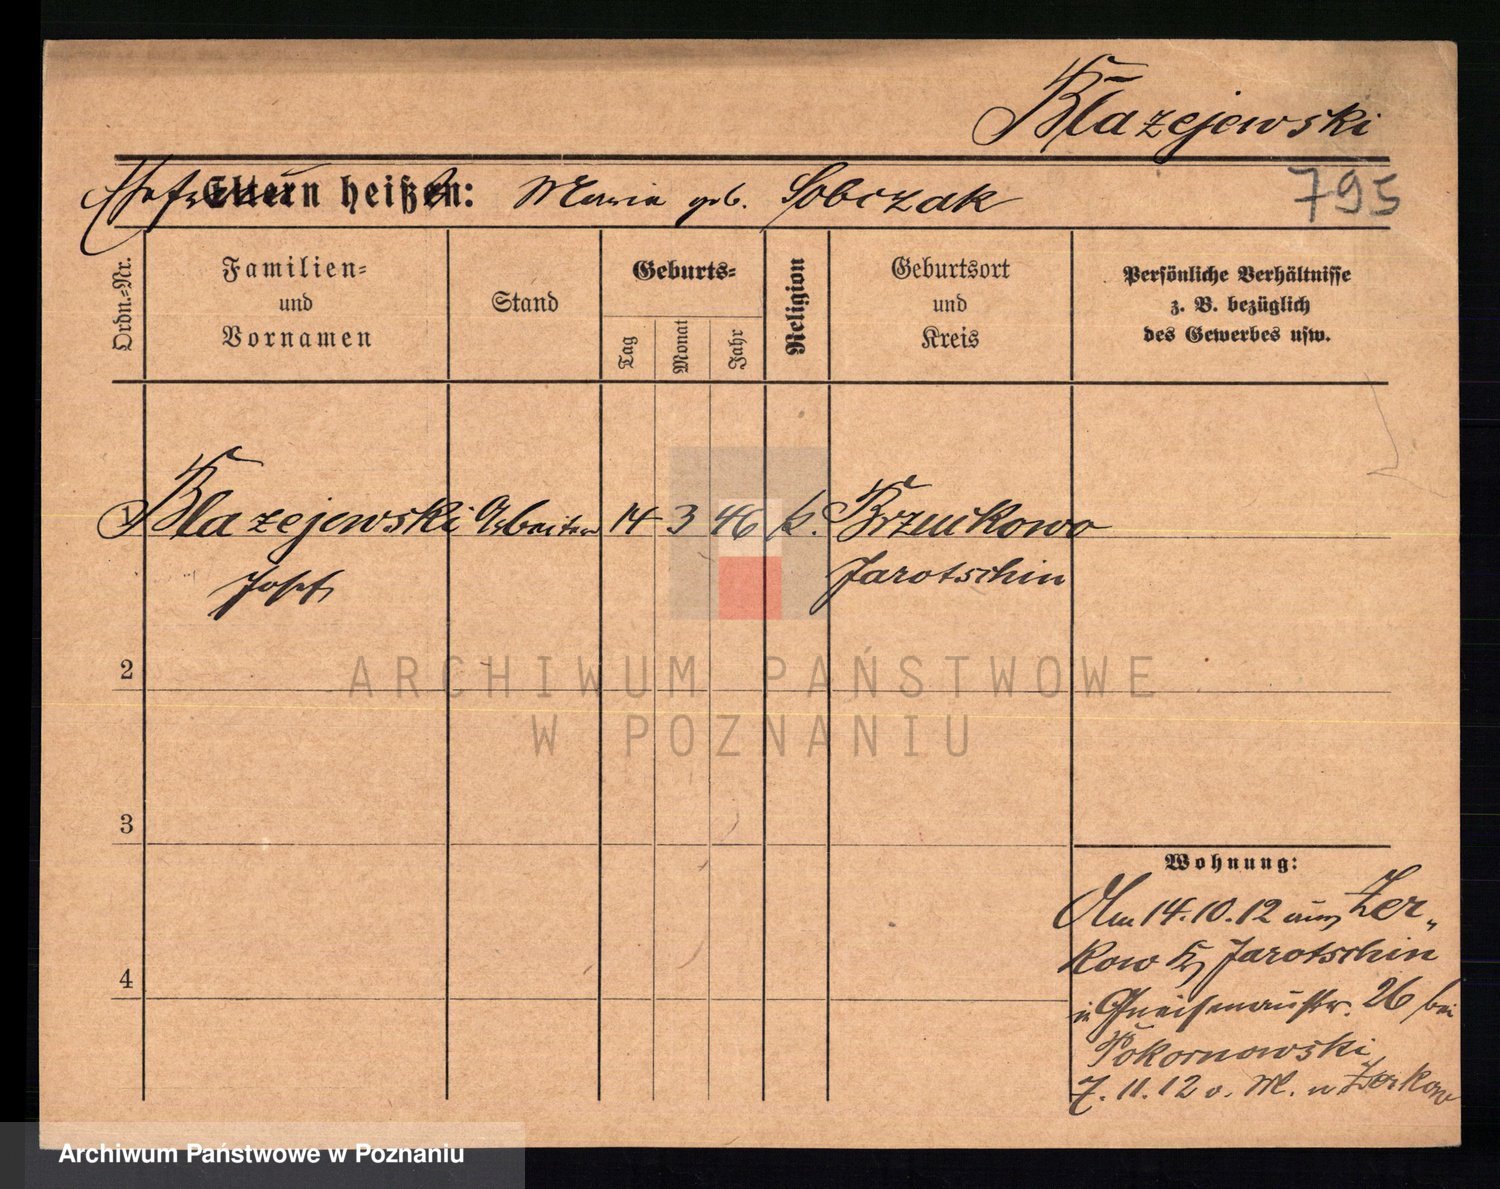 Blazejewski
Ehefrau Eltern heißen: Maria geb. Sobczak
795
Ordn.-Nr.
Familien-
und
Vornamen
Stand
Geburts-
Tag
Monat
Jahr
Religion
Geburtsort
und
Kreis
Persönliche Verhältnisse
z. B. bezüglich
des Gewerbes usw.
1 Blazejewski Arbeiter 14 3 46 k. Brzuckowo
Josef Jarotschin
2
ARCHIWUM PAŃSTWOWE
W POZNANIU
3
Wohnung:
Am 14.10.12 aus Zer-
kow Kr Jarotschin
in Gneisenaustr. 26 bei
Pokornowski
7.11.12 v. M. n Zerkow
4
Archiwum Państwowe w Poznaniu